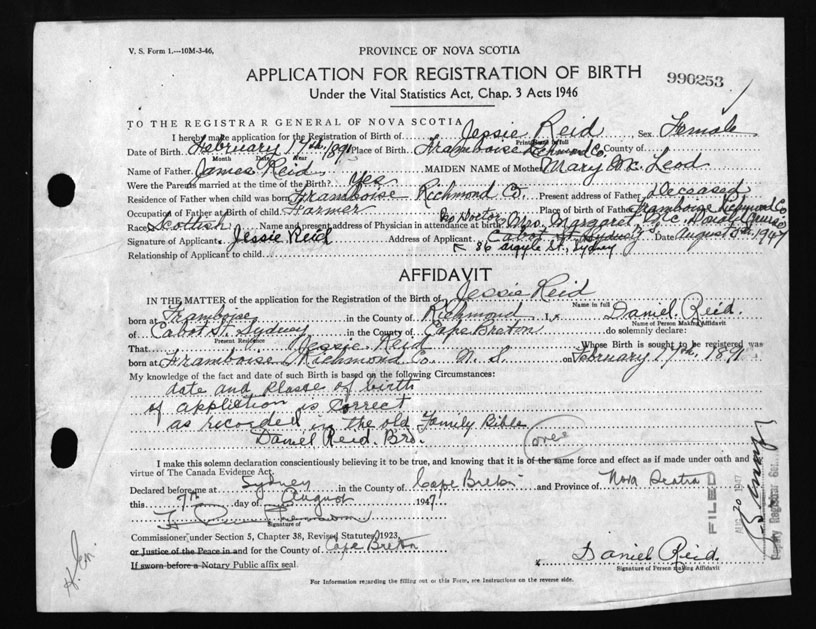 V. S. Form 1.—10M-3-46.
PROVINCE OF NOVA SCOTIA
APPLICATION FOR REGISTRATION OF BIRTH
990253
Under the Vital Statistics Act, Chap. 3 Acts 1946
TO THE REGISTRAR GENERAL OF NOVA SCOTIA
I hereby make application for the Registration of Birth of Jessie Reid, Sex Female
Print Name in full
Date of Birth February 17th 1891 Place of Birth Framboise Richmond Co. County of
Month Date Year
Name of Father James Reid MAIDEN NAME of Mother Mary Mc Leod
Were the Parents married at the time of the Birth? Yes
Residence of Father when child was born Framboise Richmond Co. Present address of Father Deceased
Occupation of Father at Birth of child Farmer Place of Birth of Father Framboise Richmond Co
Race Scottish Name and present address of Physician in attendance at birth No Doctor Mrs. Margaret Mc Donald (nurse)
Signature of Applicant Jessie Reid Address of Applicant Cabot St Sydney Date August 1947
86 Argyle St., Sydney
Relationship of Applicant to child
AFFIDAVIT
IN THE MATTER of the application for the Registration of the Birth of Jessie Reid
Name in full
born at Framboise in the County of Richmond I, Daniel Reid.
Name of Person Making Affidavit
of Cabot St. Sydney in the County of Cape Breton do solemnly declare:
Present Residence
That Jessie Reid Whose Birth is sought to be registered was
born at Framboise Richmond Co. N. S. on February 17th, 1891
My knowledge of the fact and date of such Birth is based on the following Circumstances:
date and plasse of birth
of appliction is correct
as recorded in the old Family Bible
Daniel Reid. Bro.
(over)
I make this solemn declaration conscientiously believing it to be true, and knowing that it is of the same force and effect as if made under oath and
virtue of The Canada Evidence Act.
Declared before me at Sydney in the County of Cape Breton and Province of Nova Scotia
this 7th day of August 1947
Signature of
Commissioner under Section 5, Chapter 38, Revised Statutes 1923,
or Justice of the Peace in and for the County of Cape Breton
If sworn before a Notary Public affix seal
Daniel Reid.
Signature of Person making Affidavit
For Information regarding the filling out of this Form, see Instructions on the reverse side.
FILED
AUG 20 1947
Deputy Registrar Gen.